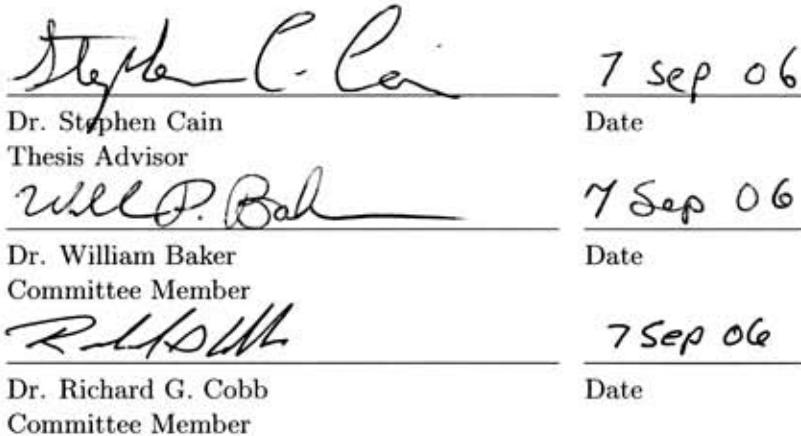 Stephen C. Cain 7 Sep 06
Dr. Stephen Cain Date
Thesis Advisor
Will P. Bak 7 Sep 06
Dr. William Baker Date
Committee Member
7 Sep 06
Dr. Richard G. Cobb Date
Committee Member